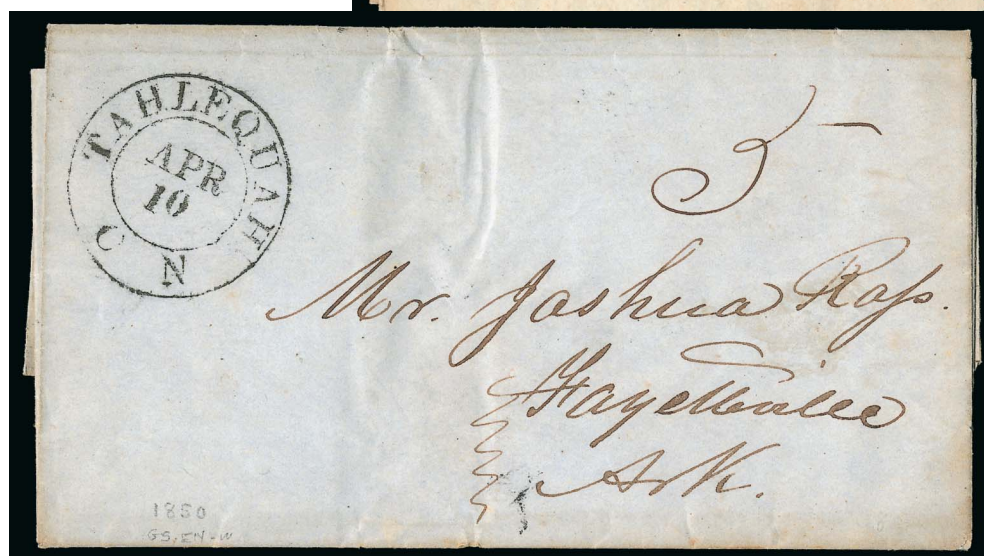 TAHLEQUAH
C N
APR
10
5
Mr. Joshua Ross.
Fayetteville
Ark.
1850